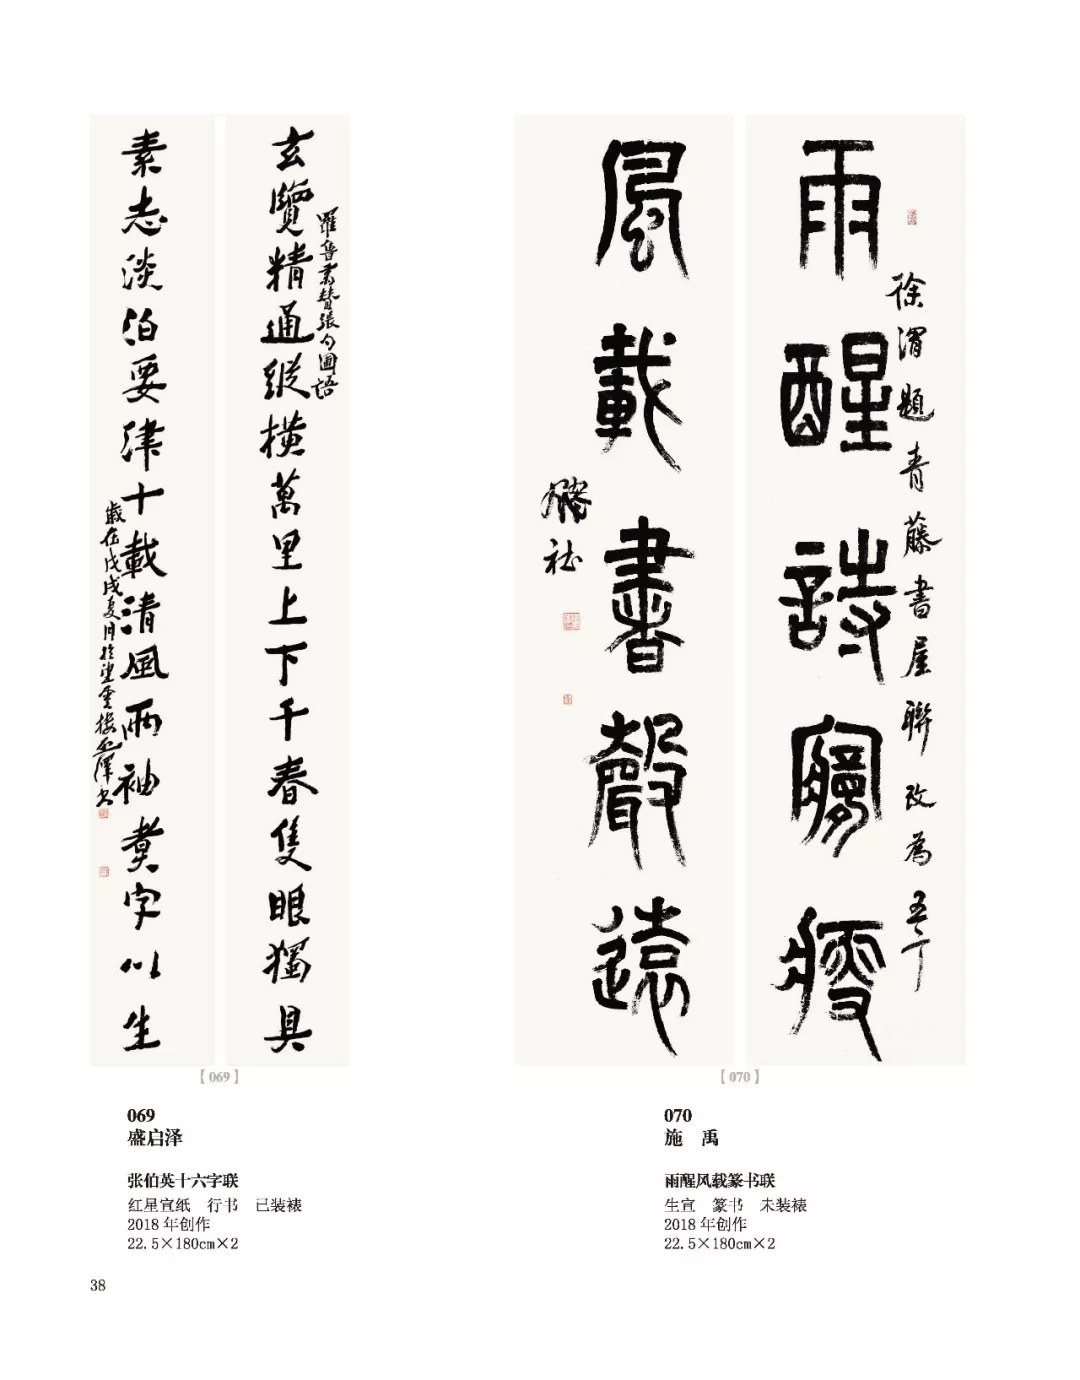 玄覽精通縱橫萬里上下千春隻眼獨具
羅魯書贊張勺圃語
素志淡泊要津十載清風兩袖煮字以生
歲在戊戌夏月於望雲樓啟澤書
【069】
雨醒詩寢瘦
徐渭題青藤書屋聯改為五
風載書聲遠
【070】
069
盛启泽
张伯英十六字联
红星宣纸 行书 已装裱
2018 年创作
22.5×180cm×2
070
施 禹
雨醒风载篆书联
生宣 篆书 未装裱
2018 年创作
22.5×180cm×2
38